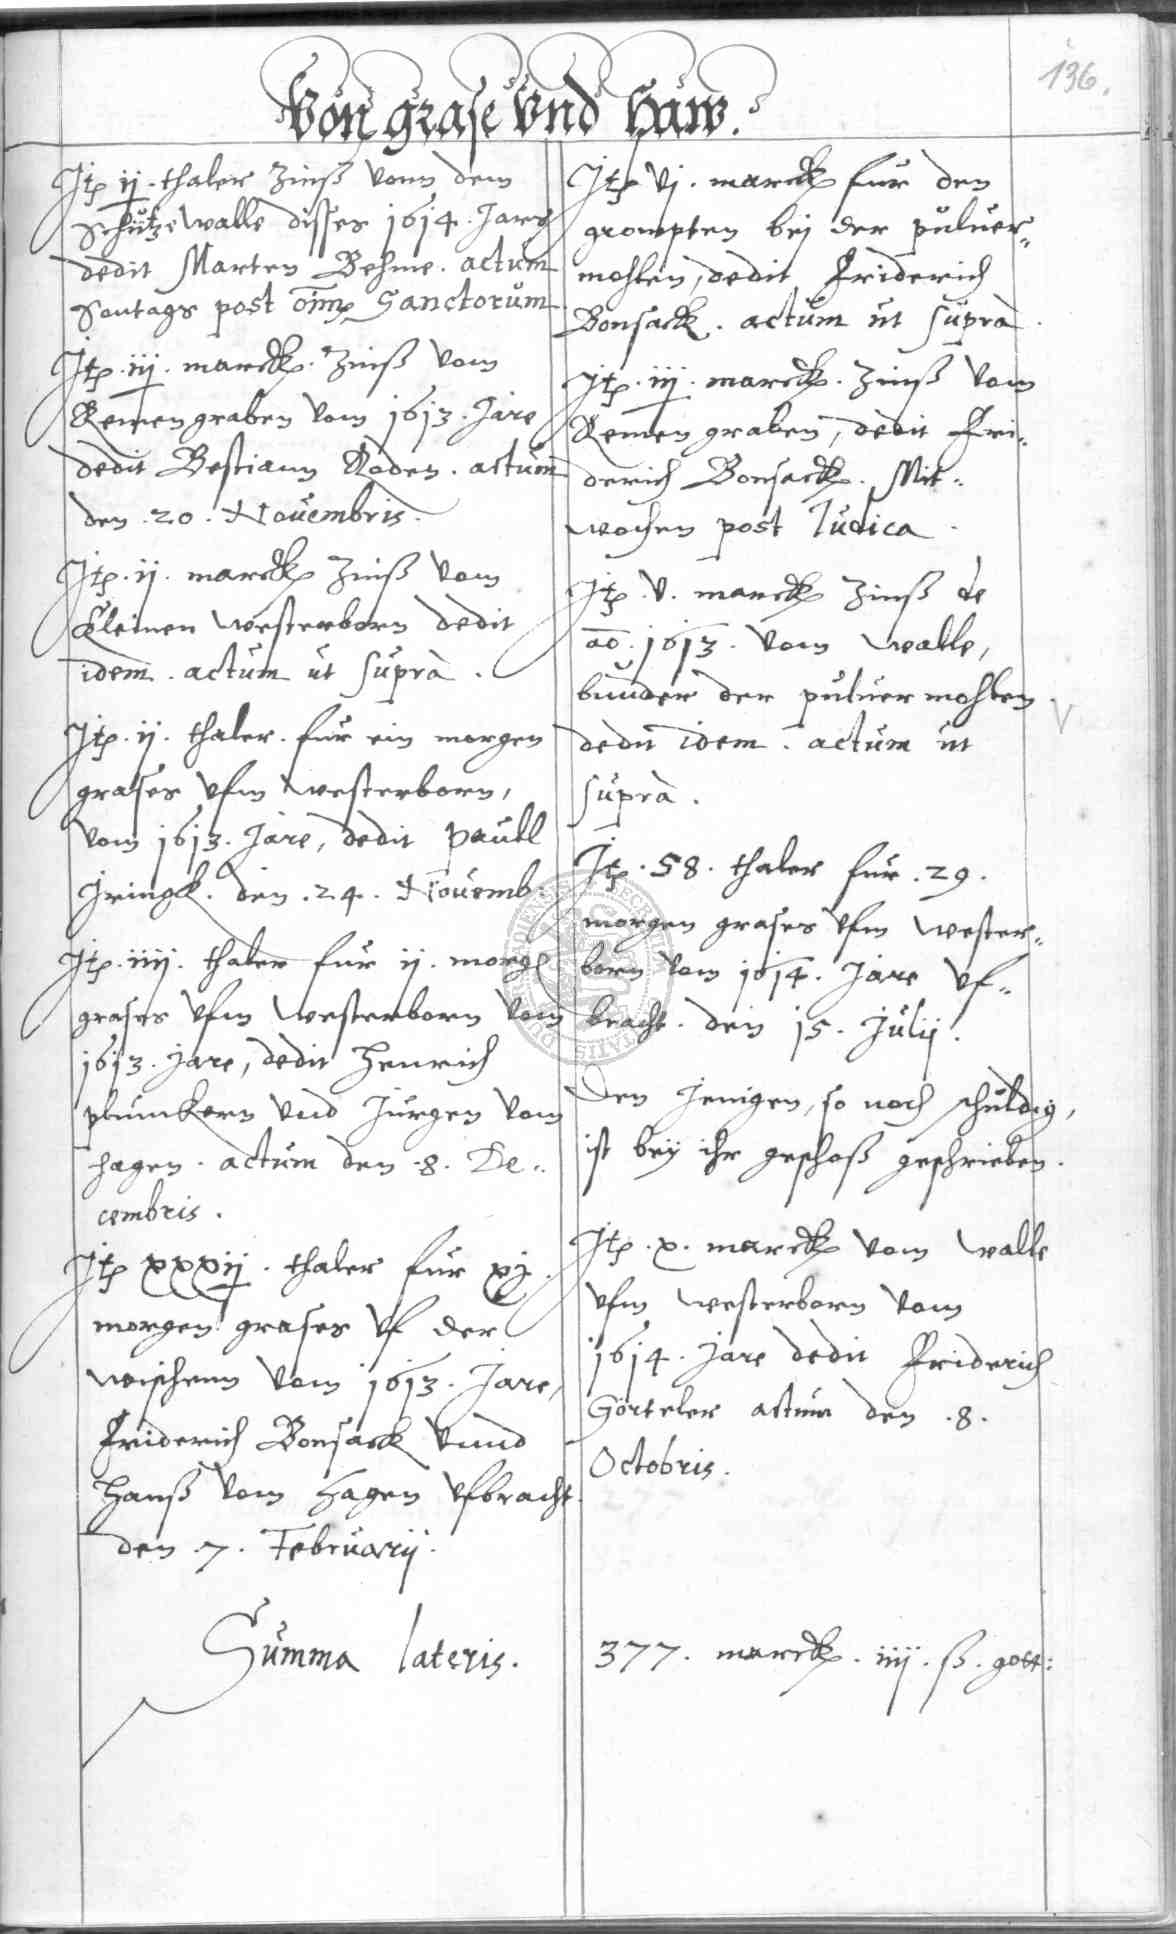 136.
Von grase vnd Haw.
Itp ij. thaler Zinß vonn dem
Schützewalle disses 1614. Jars
dedit Marten Behme. actum
Sontags post omnp Sanctorum
Itp. iij. marckp. Zinß vom
Remengraben vom 1613. Jare
dedit Bestiann Roden. actum
den .20. Nouembris.
Itp. ij. marckp Zinß vom
Kleinen westerborn dedit
idem. actum ut suprà.
Itp. ij. thaler. fur ein morgen
grases vfm westerborn,
vom 1613. Jare, dedit Paull
Jringck. den .24. Nouemb:
Itp. iiij. thaler fur ij. morgen
grases vfm westerborn vom
1613. Jare, dedit Henrich
plumkern vnd Jurgen vom
hagen. actum den .8. De..
cembris.
Itp xxxij. thaler fur xj.
morgen grases vf der
wischenn vom 1613. Jare,
Friderich Bonsack vnnd
Hanß vom Hagen vfbracht
den .7. Februarij.
Itp vj. marckp fur den
grompten bej der puluer..
mohlen, dedit Friderich
Bonsack. actum ut suprà.
Itp. iij. marckp. Zinß vom
Remengraben, dedit Fri..
derich Bonsackp. Mit..
wochen post Iudica.
Itp. v. marckp Zinß de
ao. 1613. vom walle,
der puluermohlen
dedit idem. actum ut
suprà.
Itp. 58. thaler fur .29.
morgen grases vfm wester..
born vom 1614. Jare vf..
bracht. den 15. Julij.
Den Jenigen, so noch schuldig,
ist beÿ ihr geschoß geschrieben.
Itp. x. marckp vom walle
vfm westerborn vom
1614. Jare dedit Friderich
Görteler actum den .8.
Octobris.
Summa lateris. 377. marckp. iiij. ß. gott: